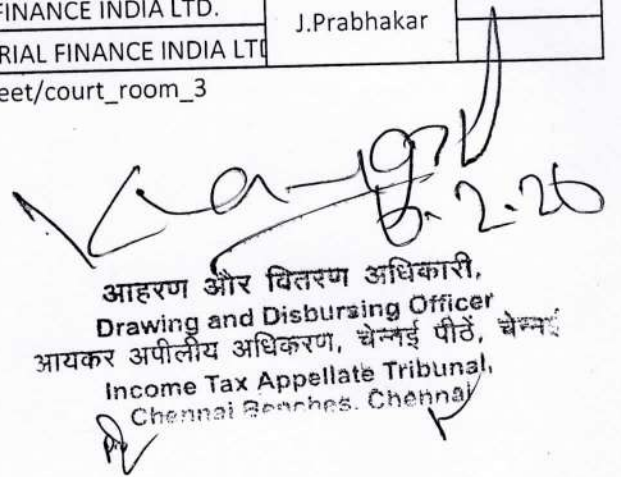 FINANCE INDIA LTD.
J.Prabhakar
RIAL FINANCE INDIA LTD
eet/court_room_3
6.2.26
आहरण और वितरण अधिकारी,
Drawing and Disbursing Officer
आयकर अपीलीय अधिकरण, चेन्नई पीठें, चेन्नई
Income Tax Appellate Tribunal,
Chennai Benches. Chennai